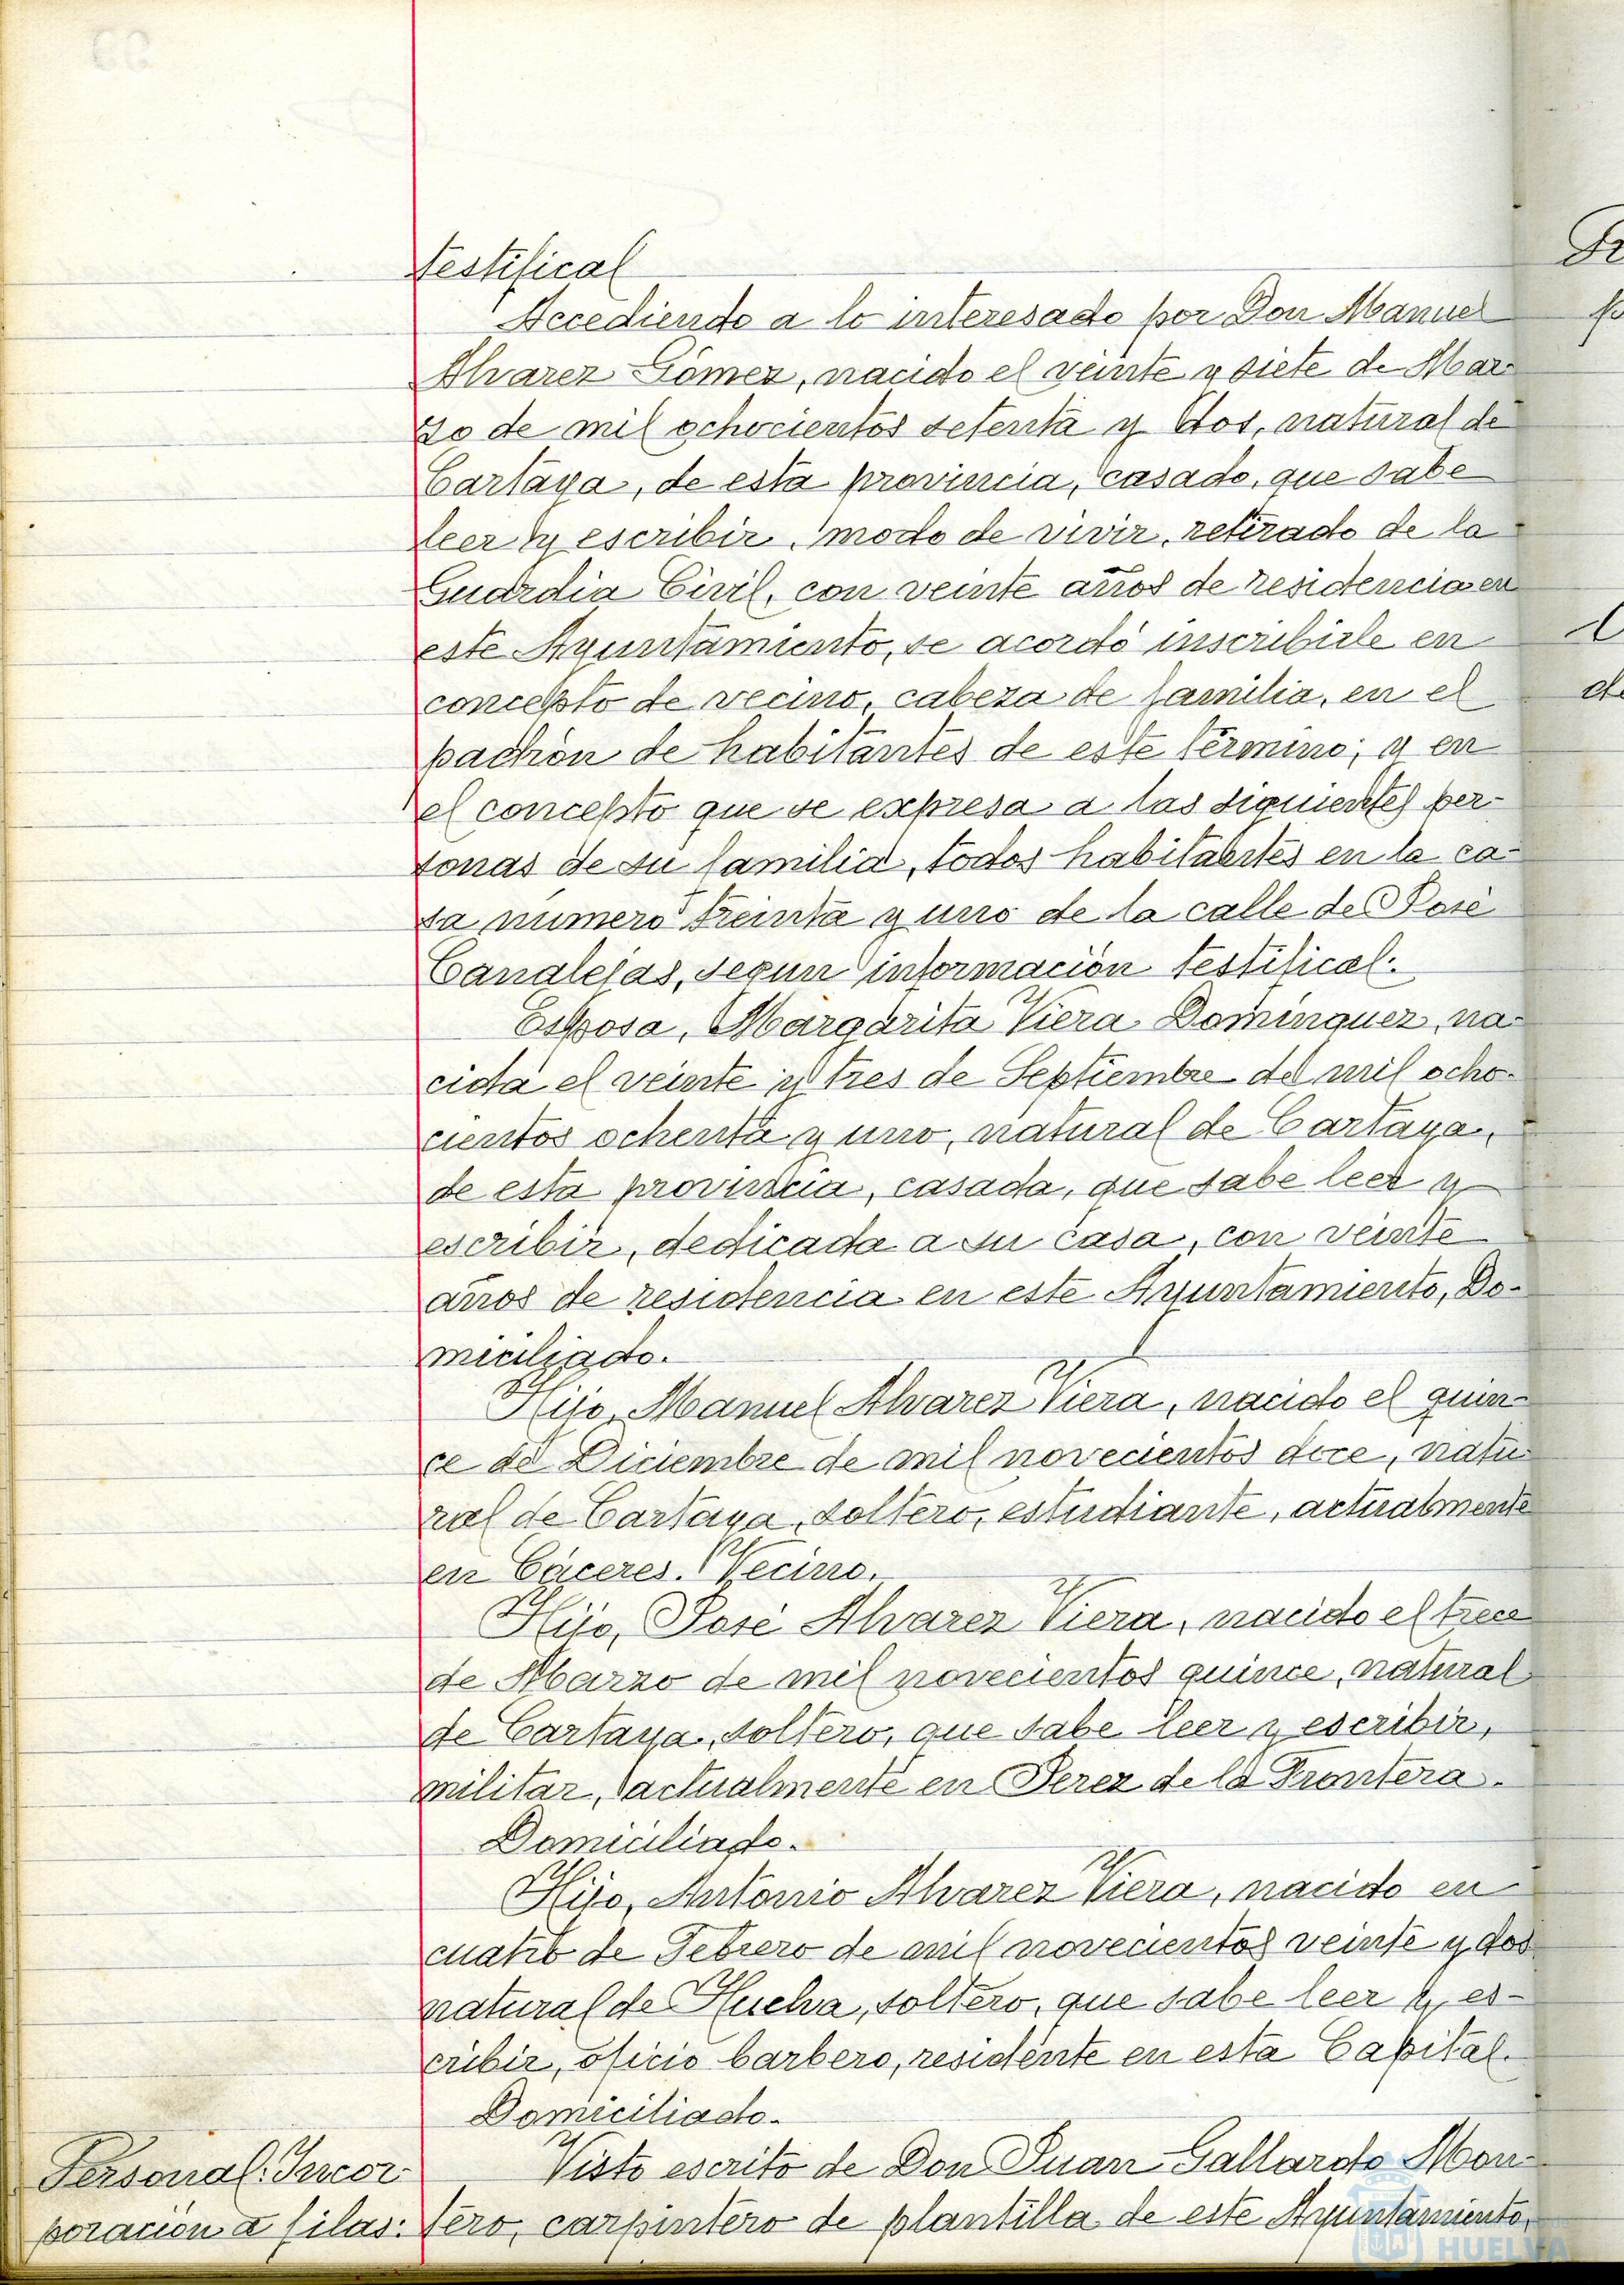 testifical
Accediendo a lo interesado por Don Manuel
Alvarez Gómez, nacido el veinte y siete de Mar-
zo de mil ochocientos setenta y dos, natural de
Cartaya, de esta provincia, casado, que sabe
leer y escribir, modo de vivir, retirado de la
Guardia Civil, con veinte años de residencia en
este Ayuntamiento, se acordó inscribirle en
concepto de vecino, cabeza de familia, en el
padrón de habitantes de este término; y en
el concepto que se expresa a las siguientes per-
sonas de su familia, todos habitantes en la ca-
sa número treinta y uno de la calle de José
Canalejas, segun información testifical:
Esposa, Margarita Viera Dominguez, na-
cida el veinte y tres de Septiembre de mil ocho-
cientos ochenta y uno, natural de Cartaya,
de esta provincia, casada, que sabe leer y
escribir, dedicada a su casa, con veinte
años de residencia en este Ayuntamiento, Do-
miciliado.
Hijo, Manuel Alvarez Viera, nacido el quin-
ce de Diciembre de mil novecientos doce, natu-
ral de Cartaya, soltero, estudiante, actualmente
en Cáceres. Vecino.
Hijo, José Alvarez Viera, nacido el trece
de Marzo de mil novecientos quince, natural
de Cartaya, soltero, que sabe leer y escribir,
militar, actualmente en Jerez de la Frontera.
Domiciliado.
Hijo, Antonio Alvarez Viera, nacido en
cuatro de Febrero de mil novecientos veinte y dos
natural de Huelva, soltero, que sabe leer y es-
cribir, oficio barbero, residente en esta Capital.
Domiciliado.
Personal. Incor-
poración a filas:
Visto escrito de Don Juan Gallardo Mon-
tero, carpintero de plantilla de este Ayuntamiento,
HUELVA